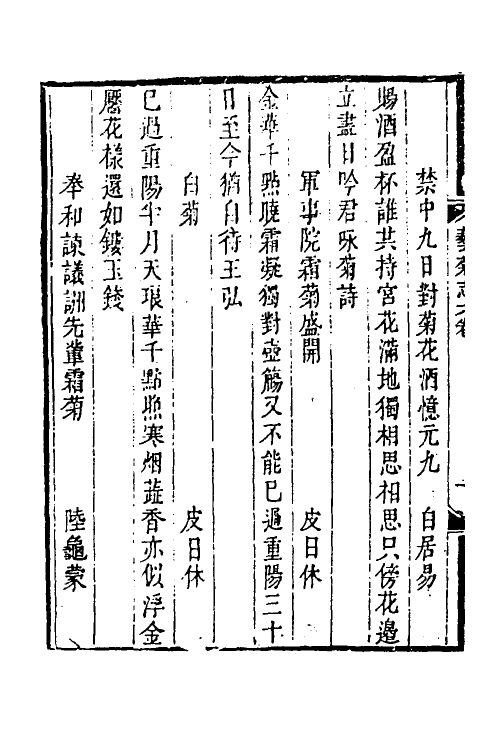 藝菊志六卷
禁中九日對菊花酒憶元九　白居易
賜酒盈杯誰共持宮花滿地獨相思相思只傍花邊
立盡日吟君咏菊詩
軍事院霜菊盛開　皮日休
金華千點曉霜凝獨對壺觴又不能已過重陽三十
日至今猶自待王弘
白菊　皮日休
已過重陽半月天琅華千點照寒烟蕋香亦似浮金
靨花樣還如鏤玉錢
奉和諫議詶先輩霜菊　陸龜蒙